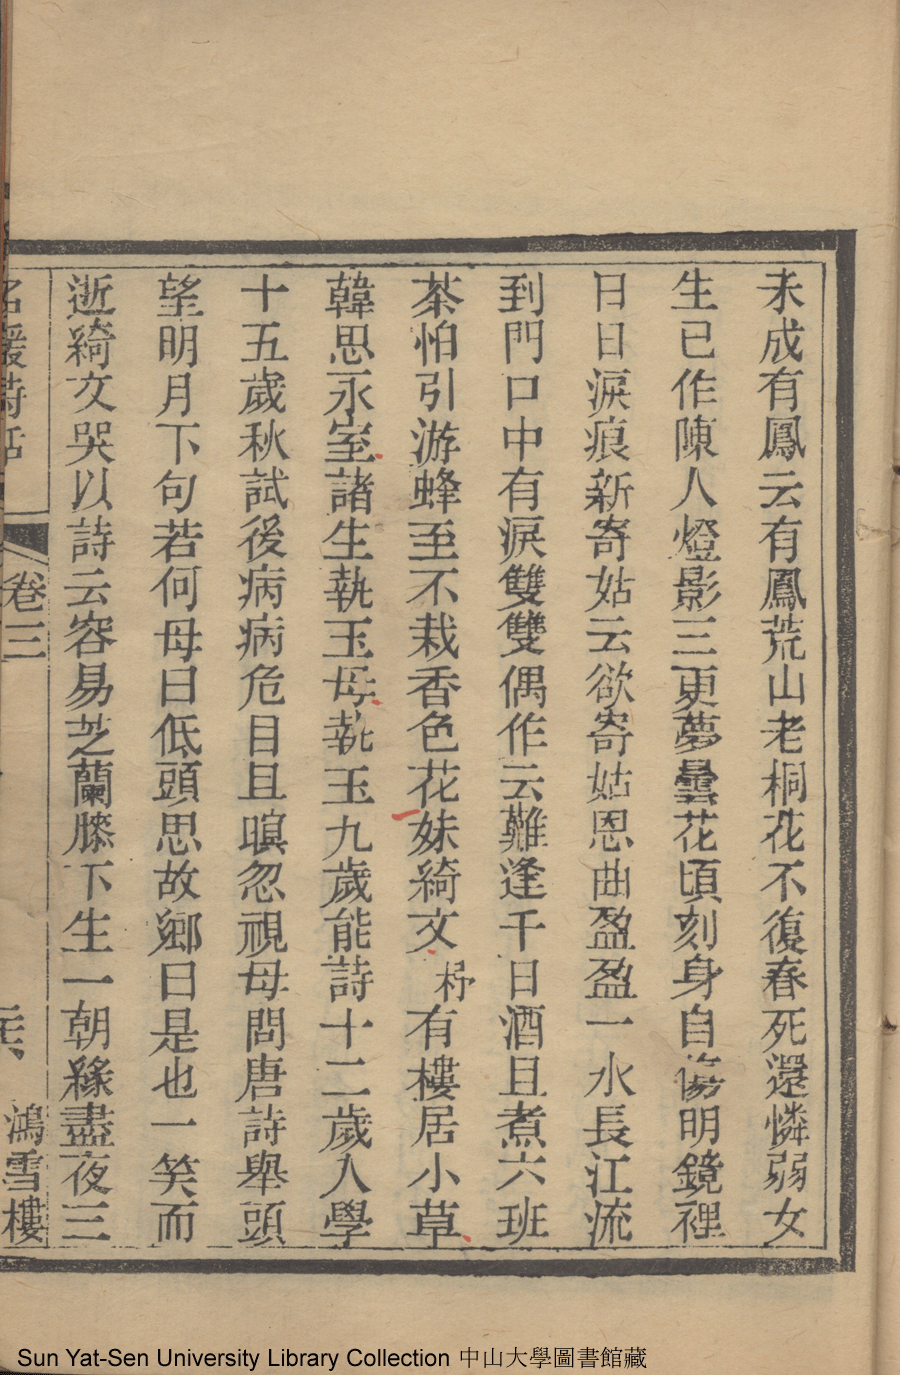 未成有鳳云有鳳荒山老桐花不復春死還憐弱女
生已作陳人燈影三更夢曇花頃刻身自傷明鏡裡
日日淚痕新寄姑云欲寄姑恩曲盈盈一水長江流
到門口中有淚雙雙偶作云難逢千日酒且煮六班
茶怕引游蜂至不栽香色花妹綺文杼有樓居小草
韓思永室諸生執玉母執玉九歲能詩十二歲入學
十五歲秋試後病病危目且瞑忽視母問唐詩舉頭
望明月下句若何母曰低頭思故鄉曰是也一笑而
逝綺文哭以詩云容易芝蘭膝下生一朝緣盡夜三
名媛詩話 卷三 鴻雪樓
Sun Yat-Sen University Library Collection 中山大學圖書館藏